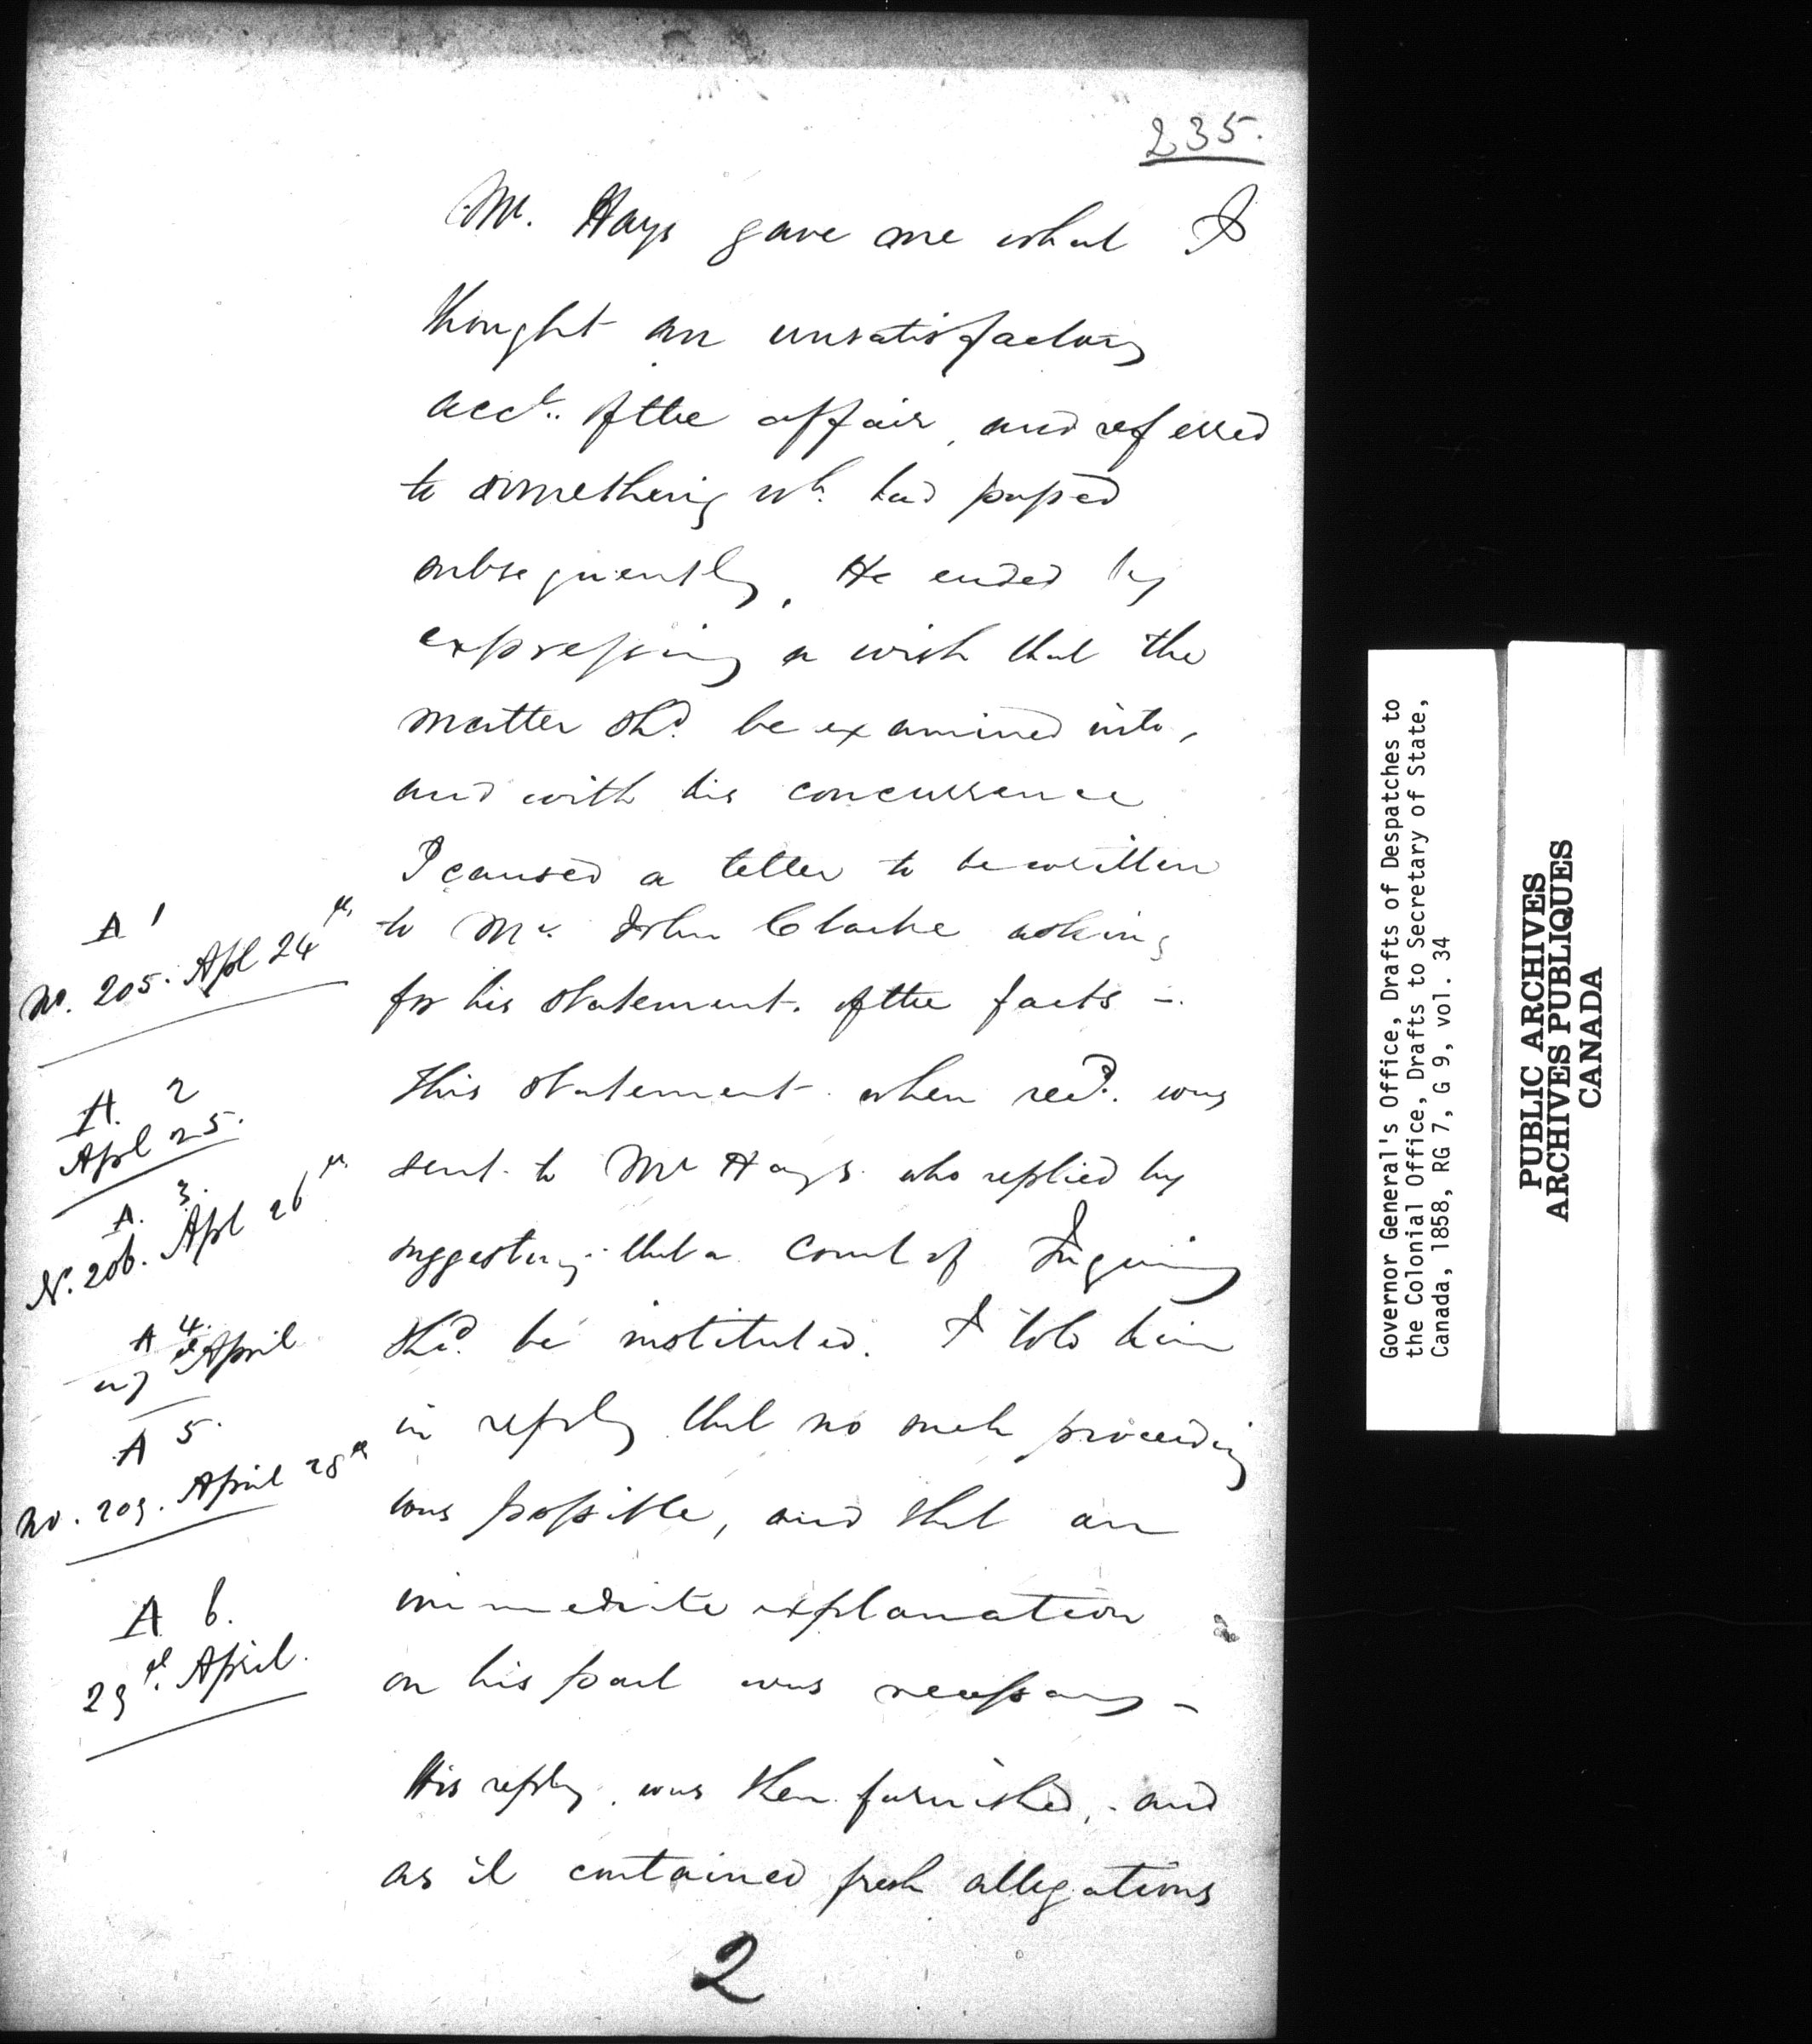 235.
Mr. Hays gave me what I
thought an unsatisfactory
acct. of the affair, and referred
to something wh. had passed
subsequently. He ended by
expressing a wish that the
matter shd. be examined into,
and with his concurrence
I caused a letter to be written
to Mr. John Clarke asking
for his statement. of the facts -.
This statement when recd. was
sent to Mr Hays who replied by
suggesting that a Court of Inquiry
shd. be instituted. I told him
in reply that no such proceeding
was possible, and that an
immediate explanation
on his part was necessary -
His reply was then furnished, and
as it contained fresh allegations
2
A 1
No. 205. Apl 24th
A. 2
Apl 25.
A. 3.
N. 206. Apl 26th
A 4.
27 April
A 5.
No. 209. April 28th
A 6.
29th. April.
Governor General's Office, Drafts of Despatches to
the Colonial Office, Drafts to Secretary of State,
Canada, 1858, RG 7, G 9, vol. 34
PUBLIC ARCHIVES
ARCHIVES PUBLIQUES
CANADA